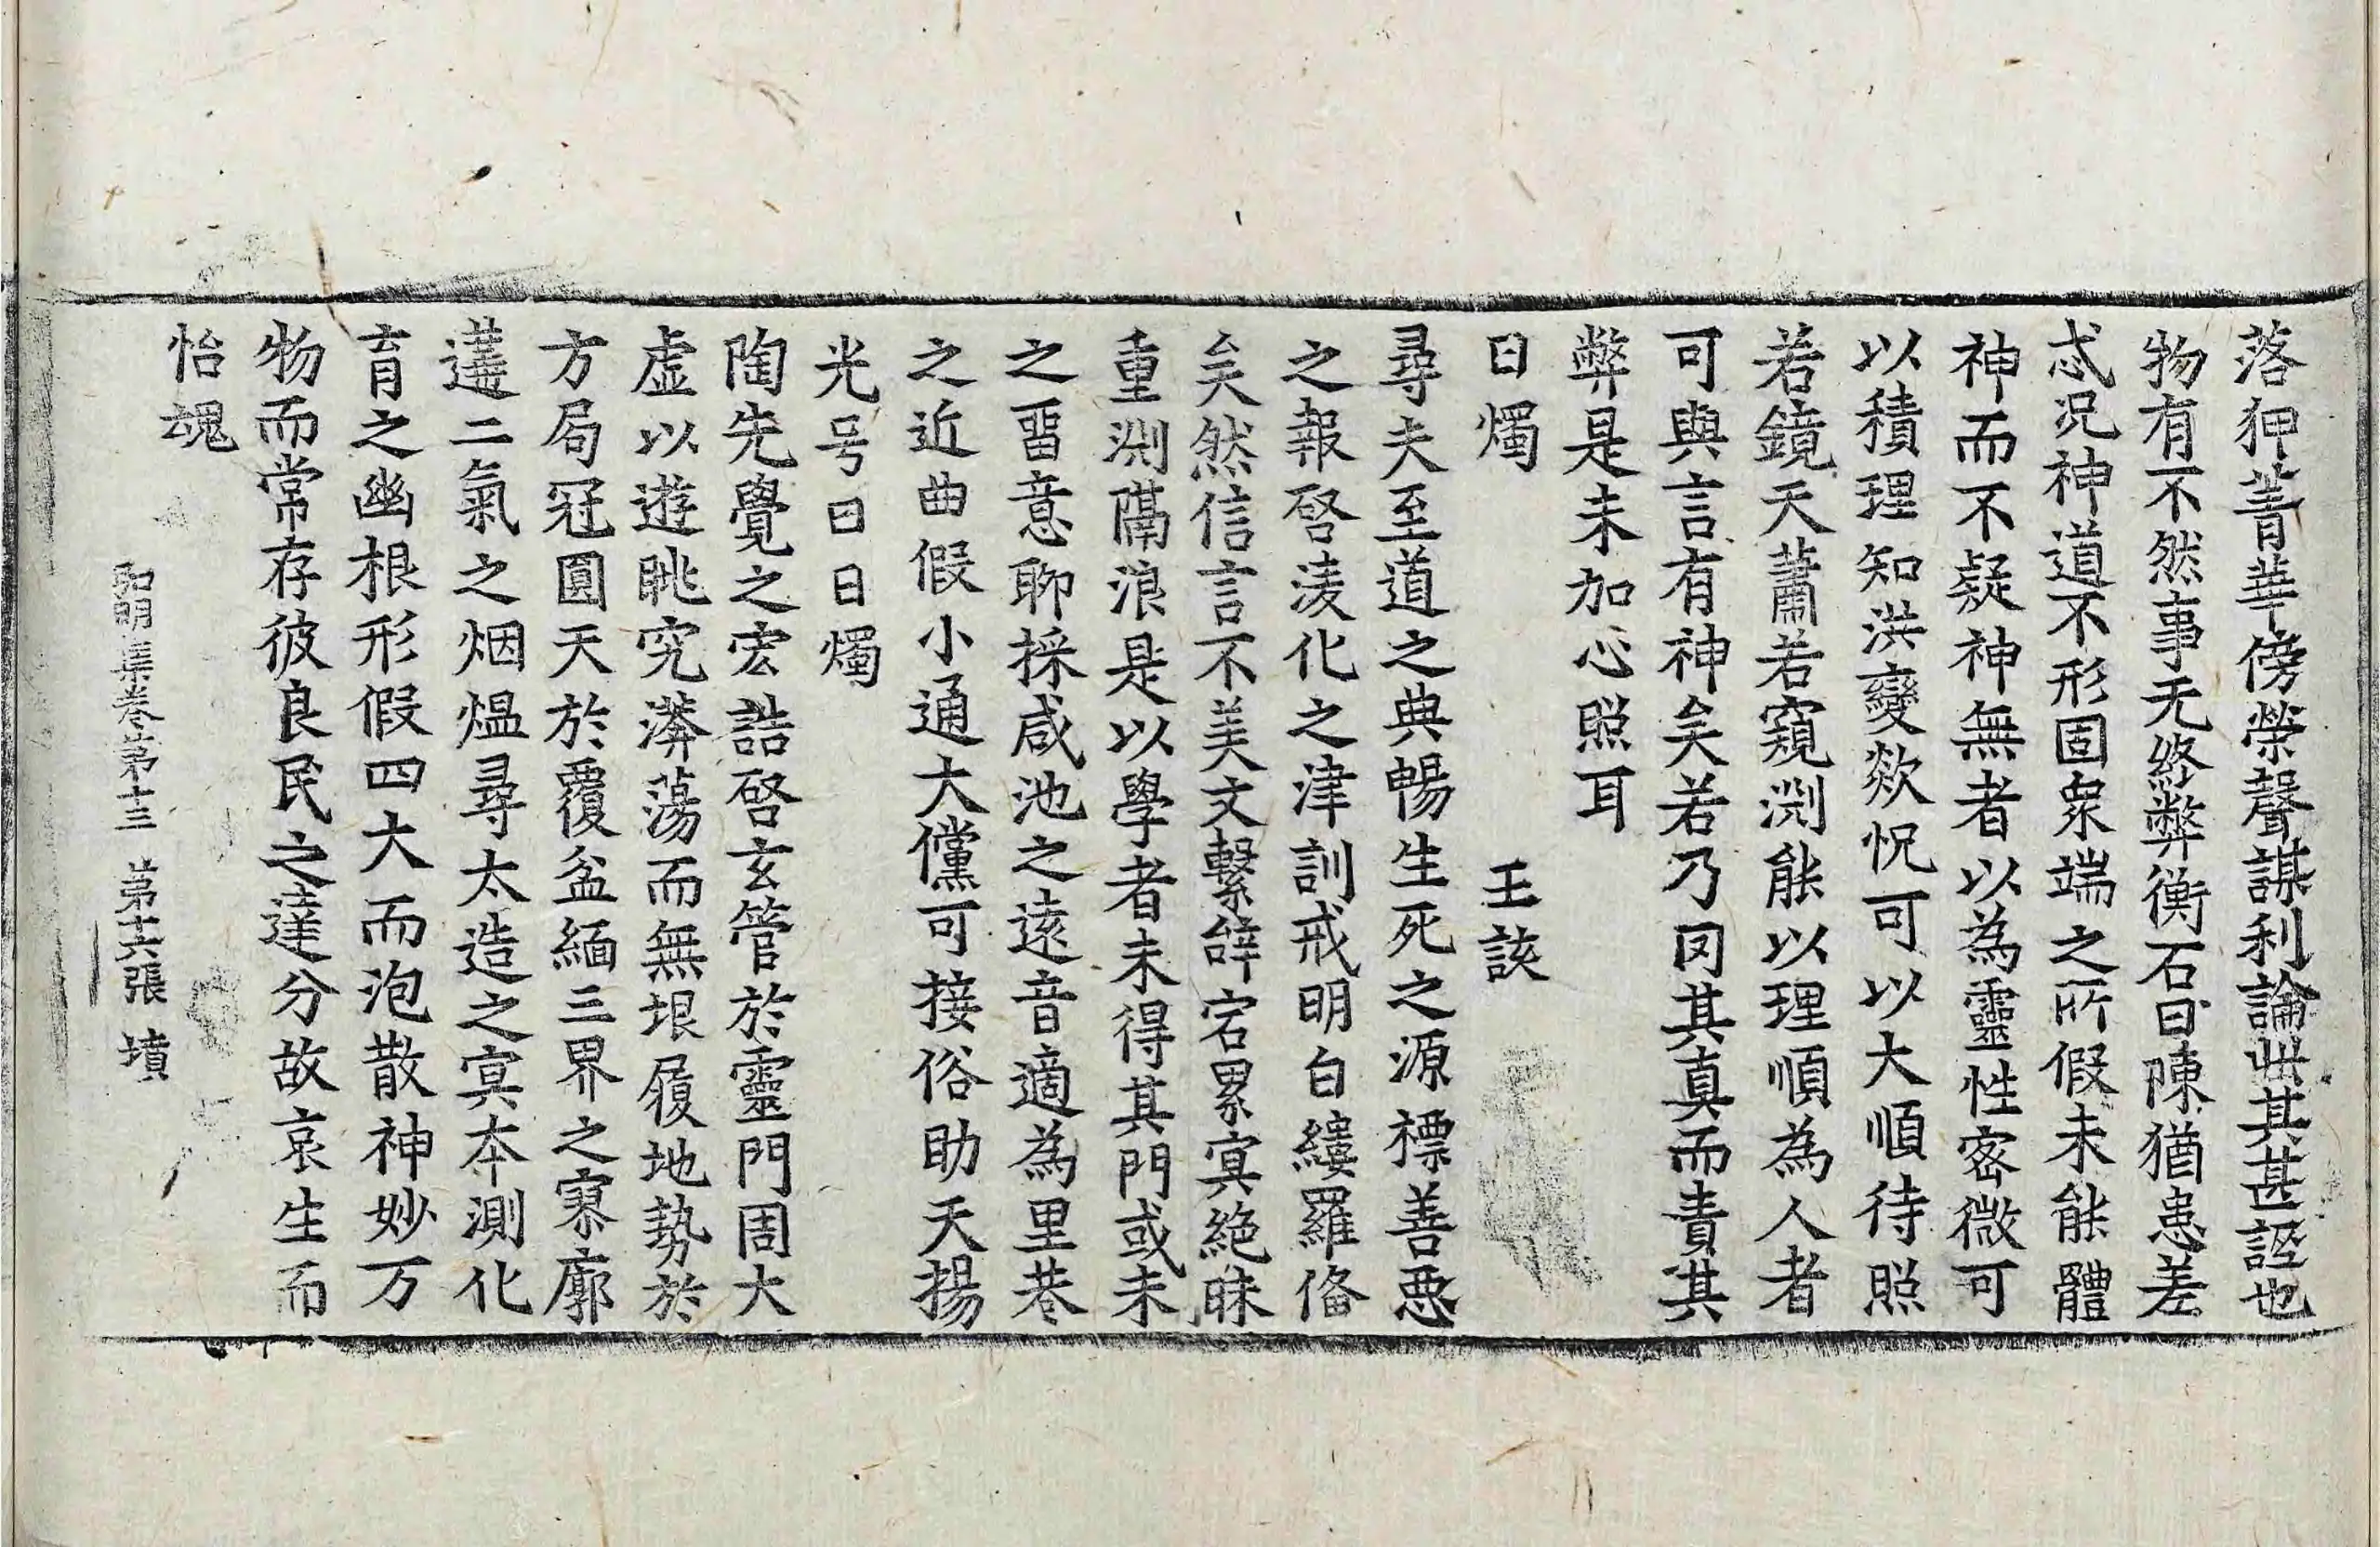 落狎菁華傍榮聲謀利論此其甚誣也
物有不然事无終弊衡石日陳猶患差
忒况神道不形固衆端之所假未能體
神而不疑神無者以為靈性密微可
以積理知洪變欻怳可以大順待照
若鏡天蕭若窺渕能以理順為人者
可與言有神矣若乃罔其真而責其
弊是未加心照耳
日燭 王該
尋夫至道之典暢生死之源標善惡
之報啓淩化之津訓戒明白縷羅俻
矣然信言不美文繫辝宕累寘絕昧
重渕隔浪是以學者未得其門或未
之留意聊採咸池之遠音適為里巷
之近曲假小通大儻可接俗助天揚
光号曰日燭
陶先覺之宏誥啓玄管於靈門周大
虛以遊眺究漭蕩而無垠履地勢於
方局冠圓天於覆盆緬三界之寥廓
遘二氣之烟煴尋太造之冥本測化
育之幽根形假四大而泡散神妙万
物而常存彼良民之達分故哀生而
怡魂
弘明集卷第十三 第十六張 墳